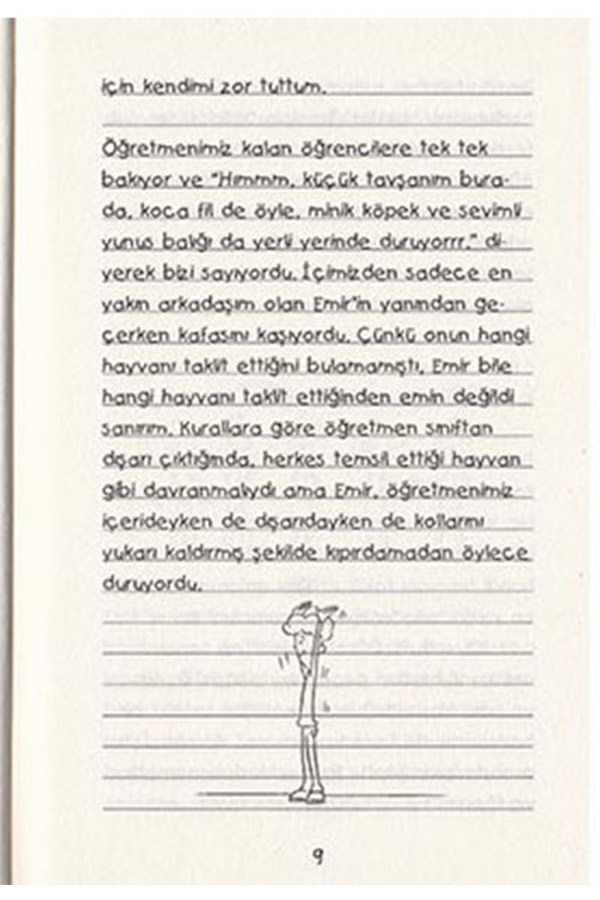 için kendimi zor tuttum.
Öğretmenimiz kalan öğrencilere tek tek
bakıyor ve “Hımmm, küçük tavşanım bura-
da, koca fil de öyle, minik köpek ve sevimli
yunus balığı da yerli yerinde duruyorrr.” di-
yerek bizi sayıyordu. İçimizden sadece en
yakın arkadaşım olan Emir'in yanından ge-
çerken kafasını kaşıyordu. Çünkü onun hangi
hayvanı taklit ettiğini bulamamıştı. Emir bile
hangi hayvanı taklit ettiğinden emin değildi
sanırım. Kurallara göre öğretmen sınıftan
dışarı çıktığında, herkes temsil ettiği hayvan
gibi davranmalıydı ama Emir, öğretmenimiz
içerideyken de dışarıdayken de kollarını
yukarı kaldırmış şekilde kıpırdamadan öylece
duruyordu.
9